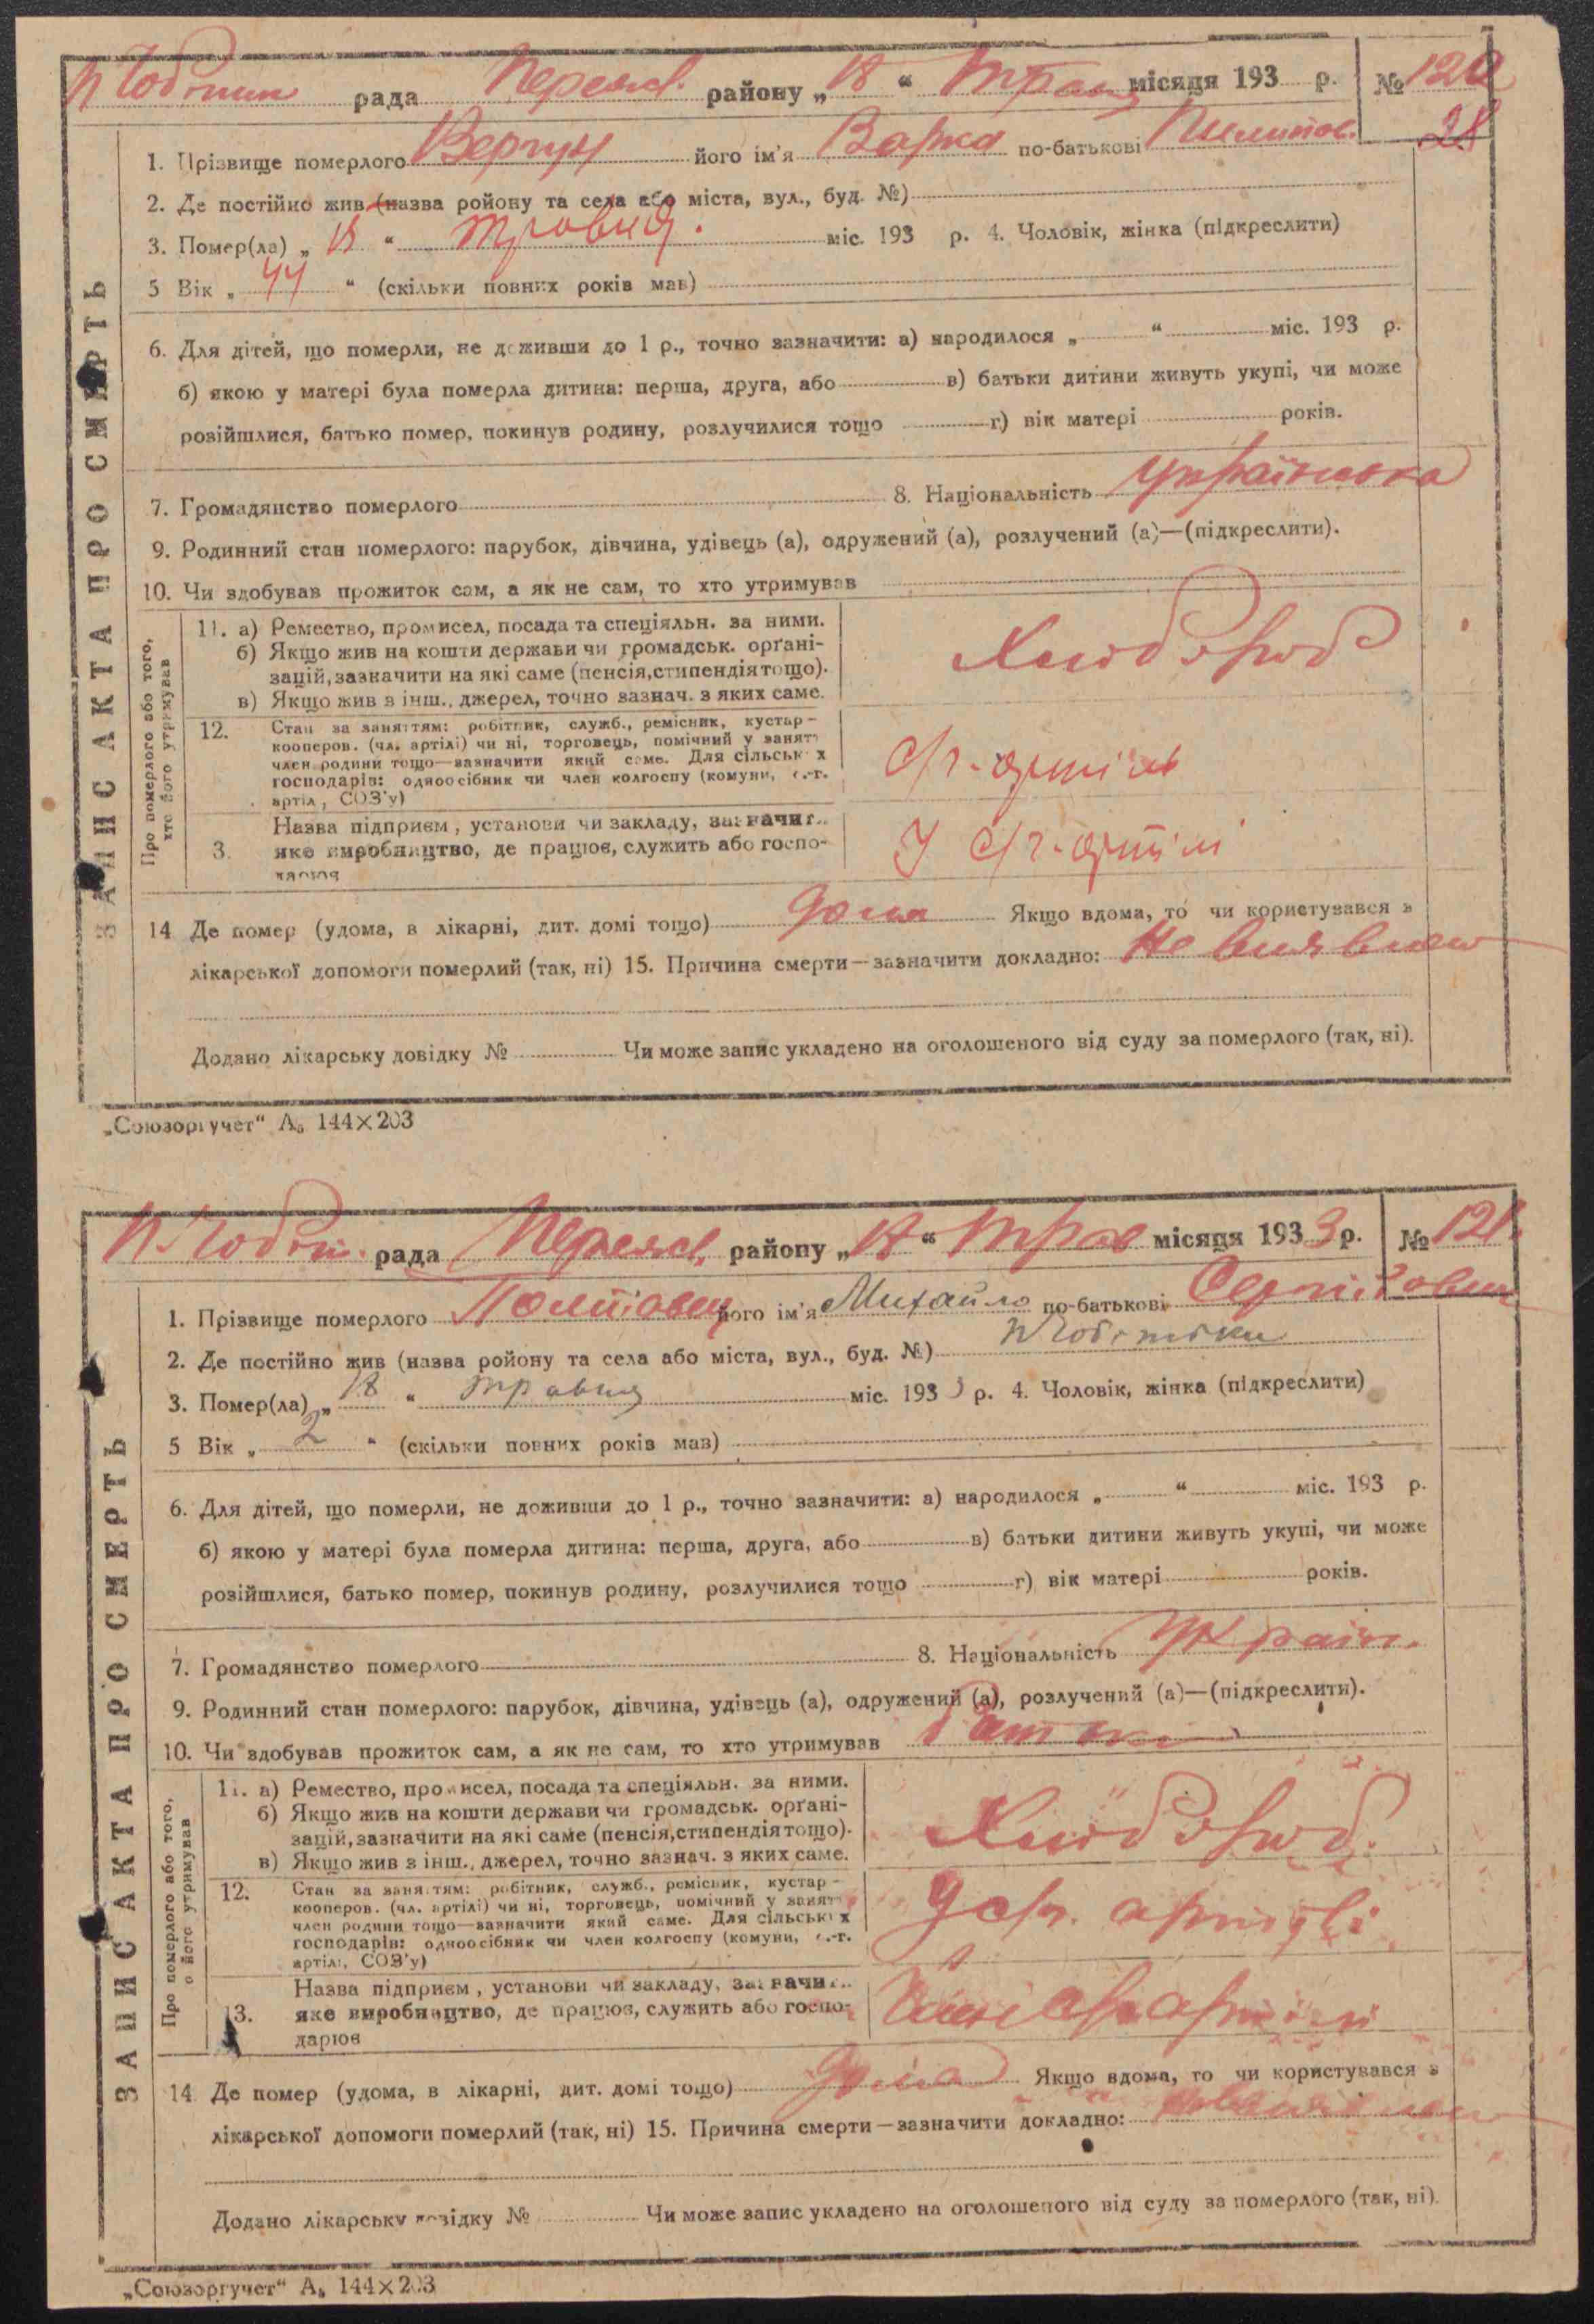 рада Переясл. району „18“ Трав місяця 193 р. № 120
28
1. Прізвище померлого Вергун його ім'я Варка по-батькові Пилипов.
2. Де постійно жив (назва ройону та села або міста, вул., буд. №)
3. Помер(ла) „18“ травня. міс. 193 р. 4. Чоловік, жінка (підкреслити)
5 Вік „44“ (скільки повних років мав)
6. Для дітей, що померли, не доживши до 1 р., точно зазначити: а) народилося „ “ міс. 193 р.
б) якою у матері була померла дитина: перша, друга, або в) батьки дитини живуть укупі, чи може
розійшлися, батько помер, покинув родину, розлучилися тощо г) вік матері років.
7. Громадянство померлого 8. Національність українська
9. Родинний стан померлого: парубок, дівчина, удівець (а), одружений (а), розлучений (а)—(підкреслити).
10. Чи здобував прожиток сам, а як не сам, то хто утримував
ЗАПИС АКТА ПРО СМЕРТЬ
Про померлого або того,
хто його утримував
11. а) Ремество, промисел, посада та спеціяльн. за ними.
б) Якщо жив на кошти держави чи громадськ. орґані-
зацій, зазначити на які саме (пенсія, стипендія тощо).
в) Якщо жив з інш., джерел, точно зазнач. з яких саме.
Хлібороб
12. Стан за заняттям: робітник, служб., ремісник, кустар-
кооперов. (чл. артілі) чи ні, торговець, помічний у занятт
член родини тощо—зазначити який саме. Для сільськ х
господарів: одноосібник чи член колгоспу (комуни, с.-г.
артіл, СОЗ'у)
с/г-артіль
3. Назва підприєм, установи чи закладу, зазначит..
яке виробництво, де працює, служить або госпо-
дарює
У с/г-артілі
14 Де помер (удома, в лікарні, дит. домі тощо) дома Якщо вдома, то чи користувався з
лікарської допомоги померлий (так, ні) 15. Причина смерти—зазначити докладно: не виявлено
Додано лікарську довідку № Чи може запис укладено на оголошеного від суду за померлого (так, ні).
„Союзоргучет“ А₅ 144×203
рада Переясл. району „18“ Трав місяця 1933 р. № 121.
1. Прізвище померлого його ім'я Михайло по-батькові
2. Де постійно жив (назва ройону та села або міста, вул., буд. №)
3. Помер(ла) „18“ травня міс. 1933 р. 4. Чоловік, жінка (підкреслити)
5 Вік „2“ (скільки повних років мав)
6. Для дітей, що померли, не доживши до 1 р., точно зазначити: а) народилося „ “ міс. 193 р.
б) якою у матері була померла дитина: перша, друга, або в) батьки дитини живуть укупі, чи може
розійшлися, батько помер, покинув родину, розлучилися тощо г) вік матері років.
7. Громадянство померлого 8. Національність Україн.
9. Родинний стан померлого: парубок, дівчина, удівець (а), одружений (а), розлучений (а)—(підкреслити).
10. Чи здобував прожиток сам, а як не сам, то хто утримував батьки
ЗАПИС АКТА ПРО СМЕРТЬ
Про померлого або того,
о його утримував
11. а) Ремество, промисел, посада та спеціяльн. за ними.
б) Якщо жив на кошти держави чи громадськ. орґані-
зацій, зазначити на які саме (пенсія, стипендія тощо).
в) Якщо жив з інш., джерел, точно зазнач. з яких саме.
Хлібороб.
12. Стан за заняттям: робітник, служб., ремісник, кустар-
кооперов. (чл. артілі) чи ні, торговець, помічний у занятт
член родини тощо—зазначити який саме. Для сільськ х
господарів: одноосібник чи член колгоспу (комуни, с.-г.
артілі, СОЗ'у)
13. Назва підприєм, установи чи закладу, зазначит..
яке виробництво, де працює, служить або госпо-
дарює
14 Де помер (удома, в лікарні, дит. домі тощо) дома Якщо вдома, то чи користувався з
лікарської допомоги померлий (так, ні) 15. Причина смерти—зазначити докладно:
Додано лікарську довідку № Чи може запис укладено на оголошеного від суду за померлого (так, ні).
„Союзоргучет“ А₅ 144×203